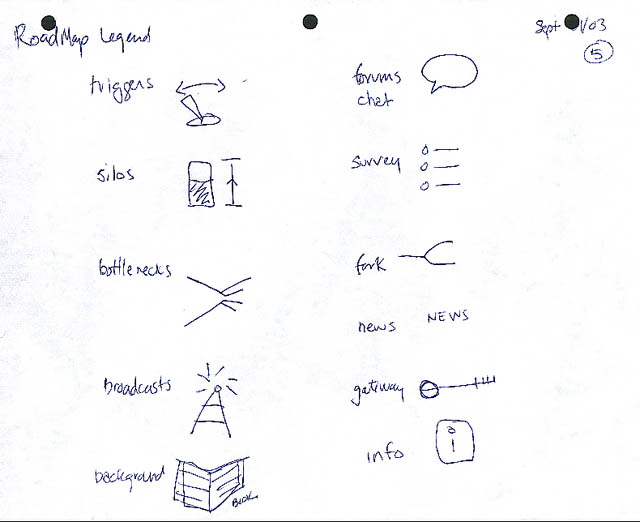 RoadMap Legend
Sept /03
5
triggers
silos
bottlenecks
Broadcasts
background
Book
forums
chat
survey
fork
news NEWS
gateway
info
i